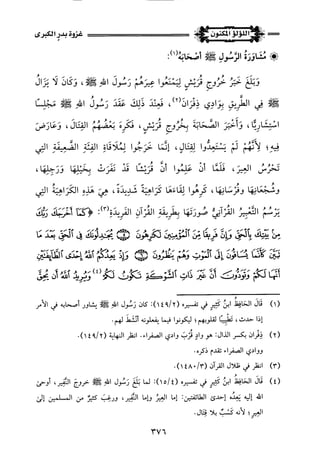 اللؤلؤ المكنون
غزوة بدر الكبرى
مُشَاوَرَةُ الرَّسُولِ ﷺ أَصْحَابَهُ(١):
وَبَلَغَ خَبَرُ خُرُوجِ قُرَيْشٍ لِيَمْنَعُوا عِيرَهُمْ رَسُولَ اللهِ ﷺ، وَكَانَ لَا يَزَالُ
ﷺ فِي الطَّرِيقِ بِوَادِي ذَفِرَانَ(٢)، فَعِنْدَ ذَلِكَ عَقَدَ رَسُولُ اللهِ ﷺ مَجْلِسًا
اسْتِشَارِيًّا، وَأَخْبَرَ الصَّحَابَةَ بِخُرُوجِ قُرَيْشٍ، فَكَرِهَ بَعْضُهُمُ القِتَالَ، وَعَارَضَ
فِيهِ، لِأَنَّهُمْ لَمْ يَسْتَعِدُّوا لِقِتَالٍ، إِنَّمَا خَرَجُوا لِمُلَاقَاةِ الفِئَةِ الضَّعِيفَةِ التِي
تَحْرُسُ العِيرَ، فَلَمَّا أَنْ عَلِمُوا أَنَّ قُرَيْشًا قَدْ نَفَرَتْ بِخَيْلِهَا وَرَجِلِهَا،
وشُجْعَانِهَا وفُرْسَانِهَا، كَرِهُوا لِقَاءَهَا كَرَاهِيَةً شَدِيدَةً، هِيَ هَذِهِ الكَرَاهِيَةُ التِي
يَرْسُمُ التَّعْبِيرُ القُرْآنِيُّ صُورَتَهَا بِطَرِيقَةِ القُرْآنِ الفَرِيدَةِ(٣): ﴿كَمَا أَخْرَجَكَ رَبُّكَ
مِنْ بَيْتِكَ بِالْحَقِّ وَإِنَّ فَرِيقًا مِنَ الْمُؤْمِنِينَ لَكَارِهُونَ يُجَادِلُونَكَ فِي الْحَقِّ بَعْدَ مَا
تَبَيَّنَ كَأَنَّمَا يُسَاقُونَ إِلَى الْمَوْتِ وَهُمْ يَنْظُرُونَ وَإِذْ يَعِدُكُمُ اللَّهُ إِحْدَى الطَّائِفَتَيْنِ
أَنَّهَا لَكُمْ وَتَوَدُّونَ أَنَّ غَيْرَ ذَاتِ الشَّوْكَةِ تَكُونُ لَكُمْ(٤) وَيُرِيدُ اللَّهُ أَنْ يُحِقَّ
(١) قَالَ الحَافِظُ ابنُ كَثِيرٍ في تفسيره (١٤٩/٢): كان رَسُول اللهِ ﷺ يشاور أصحابه في الأمر
إذا حدث، تَطْيِيبًا لقلوبهم؛ ليكونوا فيما يفعلونه أَنْشَطَ لهم.
(٢) ذِفْران بكسر الذال: هو وادٍ قُرْبَ وادي الصفراء. انظر النهاية (١٤٩/٢).
ووادي الصفراء تقدم ذكره.
(٣) انظر في ظلال القرآن (١٤٨٠/٣).
(٤) قَالَ الحَافِظُ ابنُ كَثِيرٍ في تفسيره (١٥/٤): لما بَلَغَ رَسُول اللهِ ﷺ خروج النَّفِير، أوحىٰ
الله إليه يَعِدُه إحدىٰ الطائفتين: إما العِيرُ وإما النَّفِير، ورغِبَ كثيرٌ من المسلمين إلىٰ
العِيرِ؛ لأنه كَسْبٌ بلا قِتال.
٣٧٦